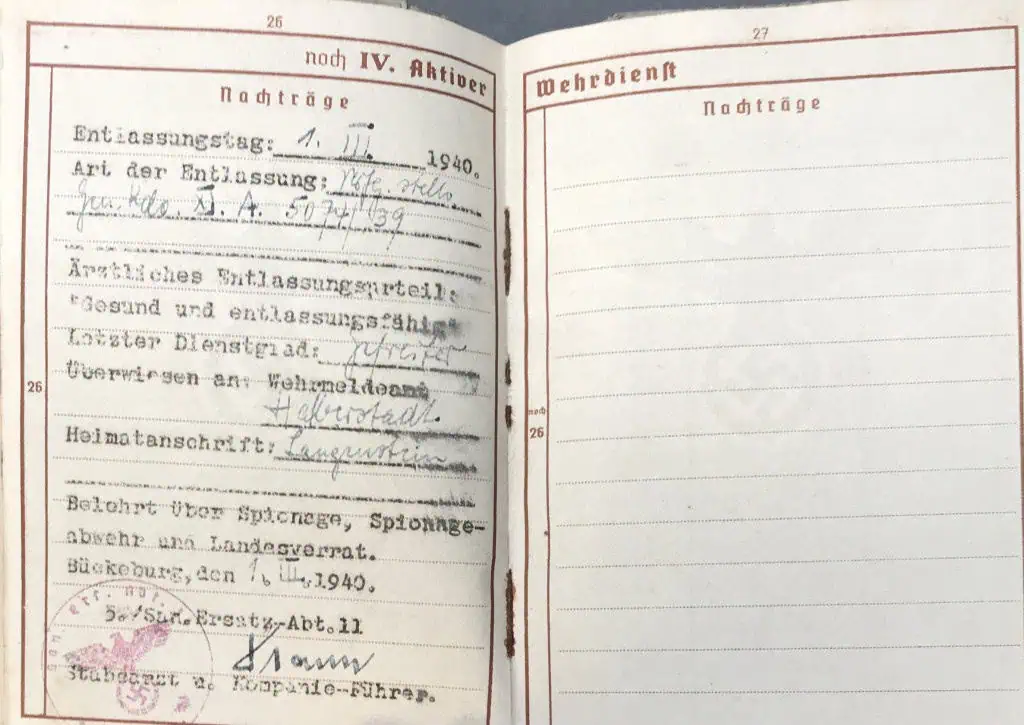 26
noch IV. Aktiver
Nachträge
Entlassungstag: 1. III. 1940.
Art der Entlassung: stello
Gen. Kdo. XI. A. 5074/39
Ärztliches Entlassungsurteil:
"Gesund und entlassungsfähig"
Letzter Dienstgrad: Gefreiter
Überwiesen an: Wehrmeldeamt
Halberstadt.
26
Heimatanschrift: Langenstein
Belehrt über Spionage, Spionage-
abwehr und Landesverrat.
Bückeburg, den 1. III. 1940.
5./San.Ersatz-Abt.11
Stabsarzt u. Kompanie-Führer.
27
Wehrdienst
Nachträge
noch
26